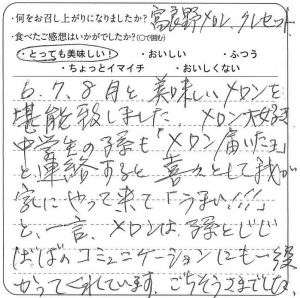 ・何をお召し上がりになりましたか？富良野メロン クレセット
・食べたご感想はいかがでしたか？（○で囲む）
・とっても美味しい！ ・おいしい ・ふつう
・ちょっとイマイチ ・おいしくない
6.7.8月と美味しいメロンを
堪能致しました。メロン大好き
中学生の孫も「メロン届いたョ」
と連絡すると喜々として我が
家にやって来て「うまい!!!」
と、一言、メロンは、孫とじじ
ばばのコミュニケーションにも一役
かってくれています。ごちそうさまでした